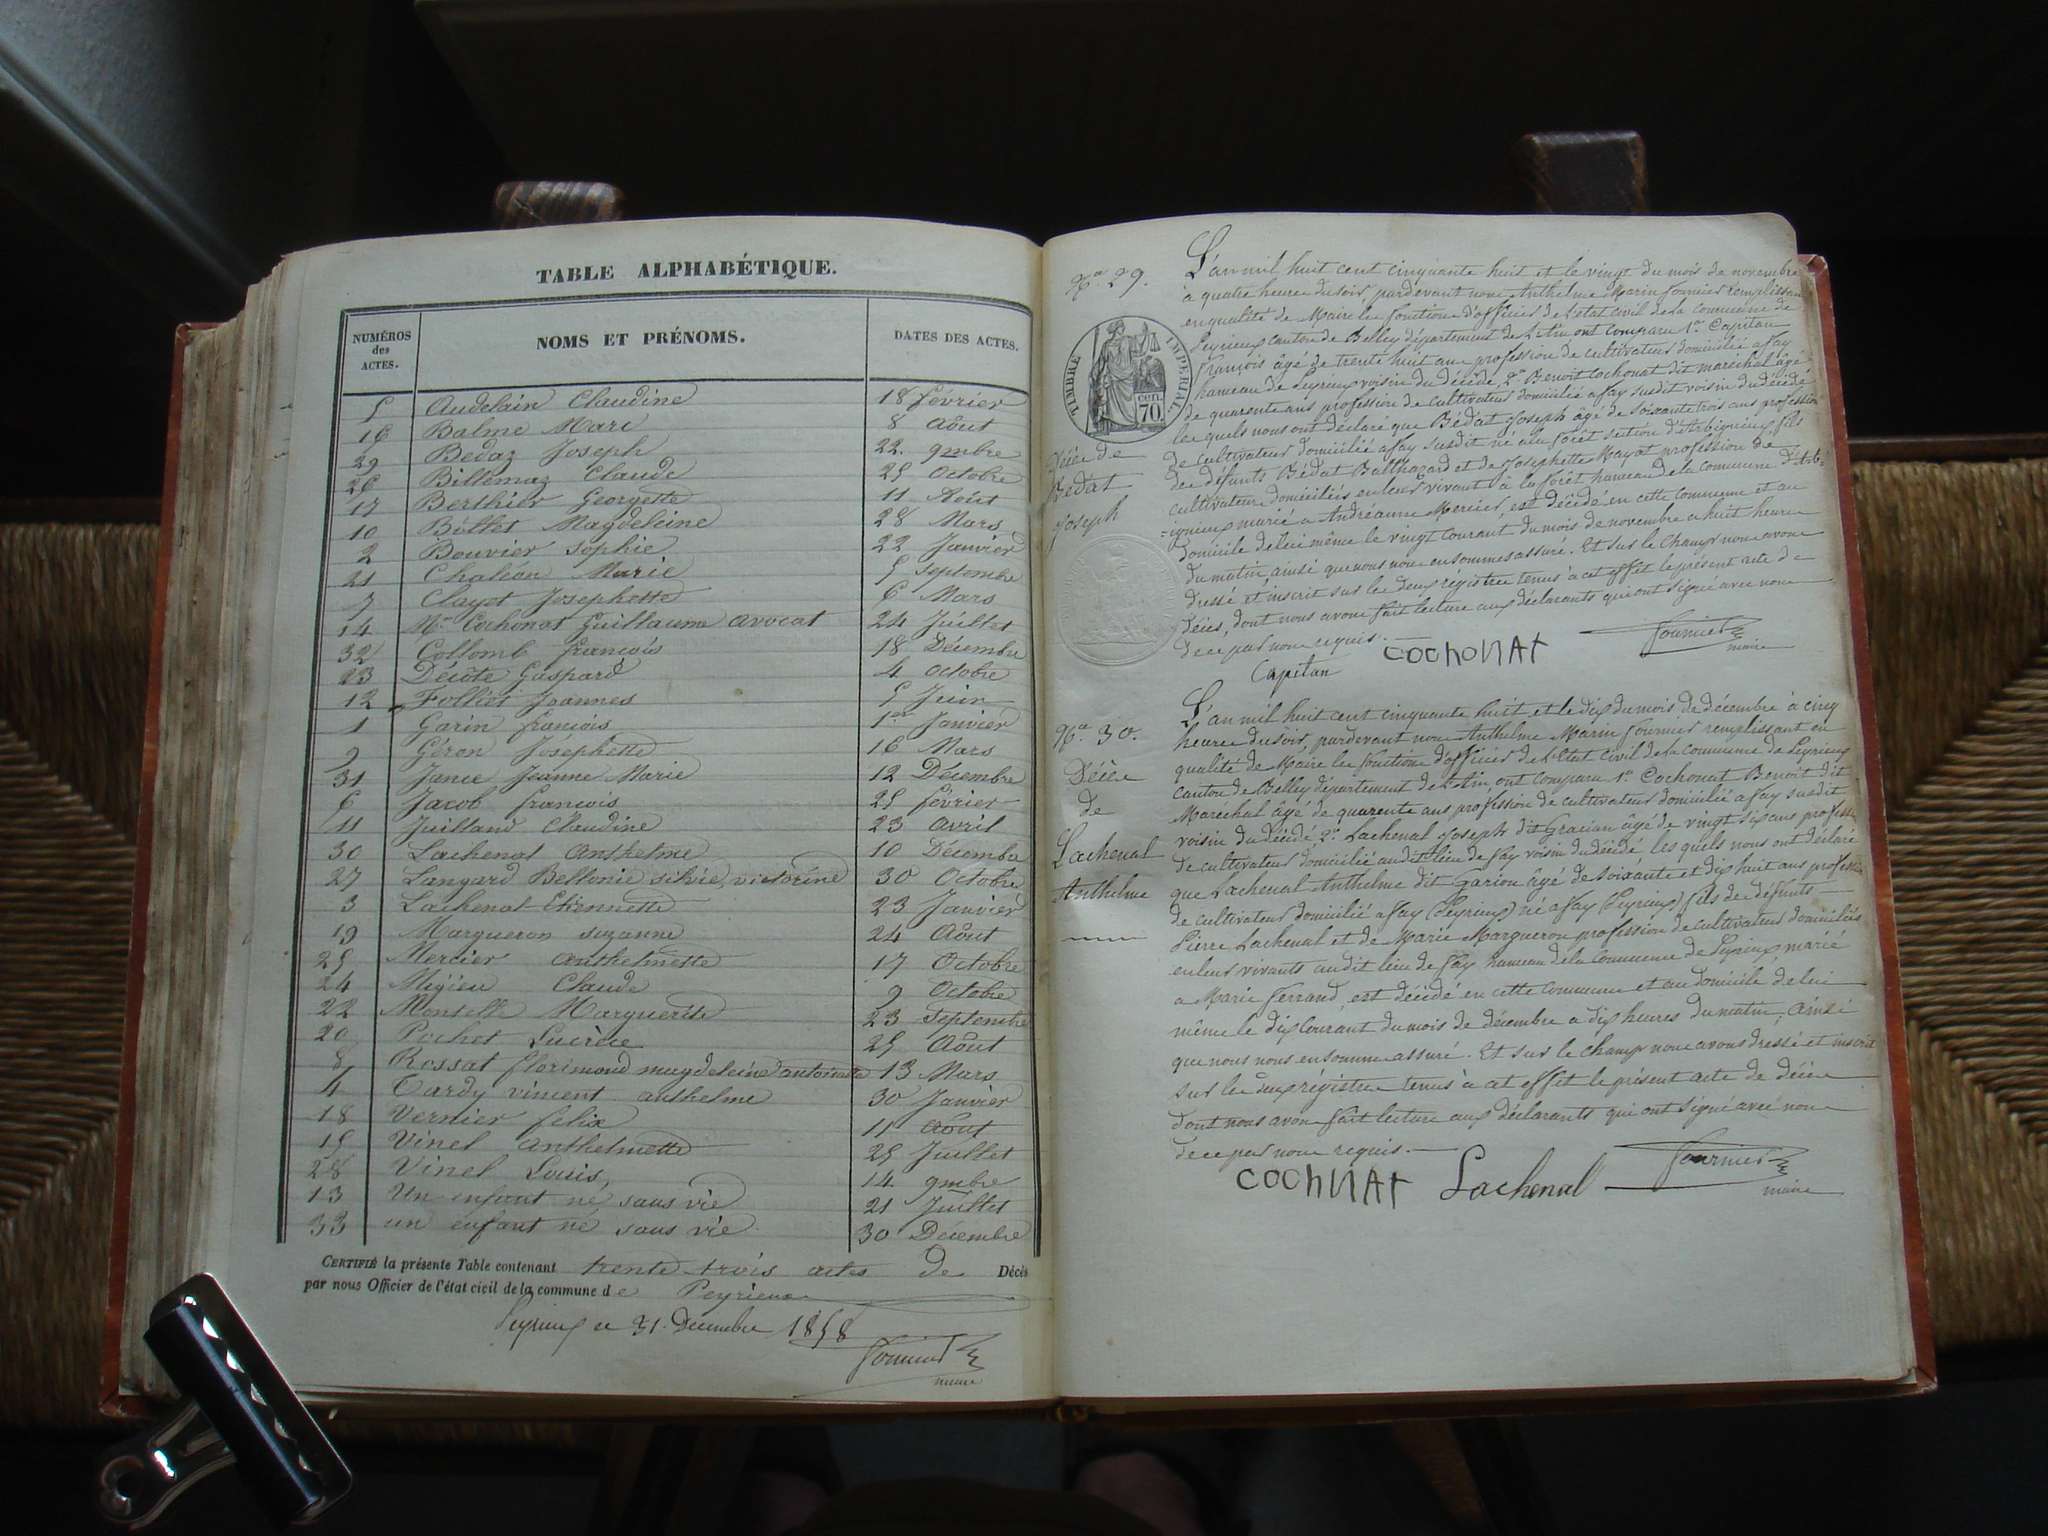 TABLE ALPHABÉTIQUE.
NUMÉROS des ACTES. NOMS ET PRÉNOMS. DATES DES ACTES.
5 Audelain Claudine 18 février
16 Balme Marc 8 Août
29 Bedaz Joseph 22. 9mbre
26 Billemaz Claude 25 Octobre
17 Berthier Georgette 11 Août
10 Bottet Magdeleine 28 Mars
2 Bouvier Sophie 22 Janvier
21 Chaléon Marie 5 Septembre
7 Clayet Josephette 6 Mars
14 Mr Cochonat Guillaume avocat 24 Juillet
32 Collomb françois 18 Décembre
23 Décote Gaspard 4 Octobre
12 Folliet Joannes 5 Juin
1 Garin françois 1er Janvier
9 Géron Josephette 16 Mars
31 Jance Jeanne Marie 12 Décembre
6 Jacob françois 25 février
11 Juilland Claudine 23 avril
30 Lachenal Anthelme 10 Décembre
27 Langard Bellonie silvie, victorine 30 Octobre
3 Lachenal Etiennette 23 Janvier
19 Margueron suzanne 24 Août
25 Mercier anthelmette 17 Octobre
24 Migieu Claude 9 Octobre
22 Montelle Marguerite 23 Septembre
20 Pichet Lucrèce 25 Août
8 Rossat florimond magdeleine antoinette 13 Mars
4 Tardy vincent anthelme 30 Janvier
18 Vernier félix 11 Août
15 Vinel anthelmette 25 Juillet
28 Vinel Louis, 14 9mbre
13 Un enfant né sans vie 21 Juillet
33 un enfant né, sans vie. 30 Décembre
CERTIFIÉ la présente Table contenant trente trois actes de Décès
par nous Officier de l'état civil de la commune de Peyrieux
Peyrieux ce 31 Décembre 1858
Fournier
maire
No. 29.
TIMBRE IMPÉRIAL.
70 cen.
Décès de
Bédat
Joseph
L'an mil huit cent cinquante huit et le vingt du mois de novembre
à quatre heures du soir, pardevant nous Anthelme Marin fournier remplissant
en qualité de Maire les fonctions d'officier de l'état civil de la commune de
Peyrieux canton de Belley département de l'Ain, ont comparu 1o. Capitan
François âgé de trente huit ans profession de cultivateur domicilié a fay
hameau de Peyrieux voisin du décédé, 2o. Benoit Cochonat dit maréchal âgé
de quarente ans profession de cultivateur domicilié a fay susdit voisin du décédé
les quels nous ont déclaré que Bédat Joseph âgé de soixante trois ans profession
de cultivateur domicilié a fay susdit né a la forêt section d'Arbignieux fils
des défunts Bédat Balthazard et de Josephette Mayot profession de
cultivateur domiciliés en leur vivant à la forêt hameau de la commune d'Arbi-
=ignieux marié a Andréanne Mercier, est décédé en cette commune et au
domicile de lui même le vingt courant du mois de novembre a huit heures
du matin, ainsi que nous nous en sommes assuré. Et sur le champ nous avons
dressé et inscrit sur les deux régistres tenus à cet effet le présent acte de
décès, dont nous avons fait lecture aux déclarants qui ont signé avec nous
de ce par nous requis.
Capitan COCHONAT Fournier
maire
No. 30.
Décès
de
Lachenal
Anthelme
L'an mil huit cent cinquante huit et le dix du mois de décembre à cinq
heures du soir, pardevant nous Anthelme Marin fournier remplissant en
qualité de Maire les fonctions d'officier de l'Etat civil de la commune de Peyrieux
canton de Belley département de l'Ain, ont comparu 1o. Cochonat Benoit dit
Maréchal âgé de quarente ans profession de cultivateur domicilié a fay susdit
voisin du décédé 2o. Lachenal Joseph dit Gracian âgé de vingt six ans profession
de cultivateur domicilié audit lieu de fay voisin du décédé les quels nous ont déclaré
que Lachenal Anthelme dit Garion âgé de soixante et dix huit ans profession
de cultivateur domicilié a fay (Peyrieux) né a fay (Peyrieux) fils de défunts
Pierre Lachenal et de Marie Margueron profession de cultivateur domiciliés
en leur vivants audit lieu de fay hameau de la commune de Peyrieux, marié
a Marie Ferrand, est décédé en cette commune et au domicile de lui
même le dix courant du mois de décembre a dix heures du matin, ainsi
que nous nous en somme assuré. Et sur le champ nous avons dressé et inscrit
sur les deux régistres tenus à cet effet le présent acte de décès
dont nous avons fait lecture aux déclarants qui ont signé avec nous
de ce par nous requis.
COCHONAT Lachenal Fournier
maire